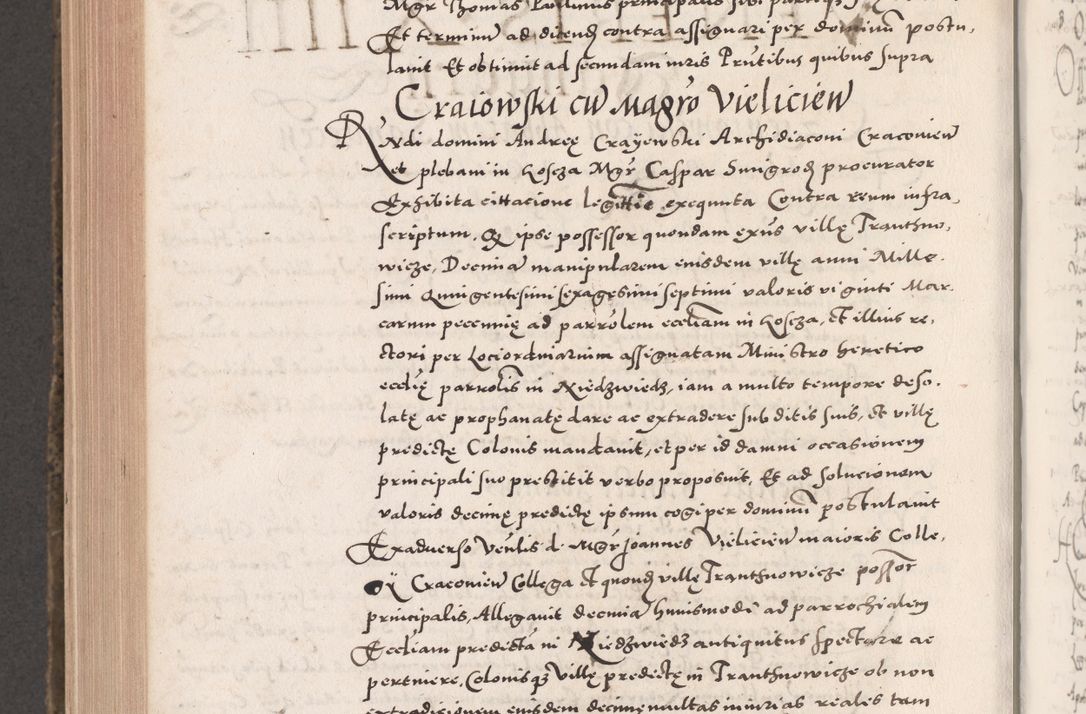 Mgr Thomas Paulinus principalis sibi
Et terminũ ad dicenḋ contra assignari per dominũ postu,
lavit Et obtinuit ad secundam iuris Prñtibus quibus supra
Craiowski cũ Magr̃o Vielicieñ
Rṽndi domini Andreę Crayewski Archidiaconi Cracovieñ
et plebani in Koscza Mgr̃ Caspar Smigroḋ procurator
Exhibita cittacione legittĩe exequuta Contra reum infra,
scriptum, Q ipse possessor quondam ex̃ns villę Tranthno,
wicze, Decimã manipularem eiusdem villę anni Mille,
simi Quingentesimi sexagesimi septimi valoris viginti Mar,
carum pecunię ad parrõlem ecclĩam in Koscza, et illius re,
ctori per Lociordinarium assignatam Ministro heretico
ecclĩę parrolĩs in Niedzwiedz, iam a multo tempore deso,
latę ac prophanatę dare ac extradere subditis suis, et villę
predictę Colonis mandavit, et per id damni occasionem
principali suo prestitit verbo proposuit, Et ad solucionem
valoris decimę predictę ipsum cogi per dominũ postulavit
Exadverso Veñlis d. Mgr̃ Joannes Vielicieñ maioris Colle,
gÿ Cracovieñ Collega et quonḋ villę Tranthnowicze possor̃
principalis, Allegavit decimã huiusmodi ad parrochialem
Ecclĩam predictã in Niedzwiedz antiquitus spectare ac
pertinere, Colonisqȝ villę predictę in Tranthnowicze ob non
extradicionem eiusdem decimę multas iniurias reales tam